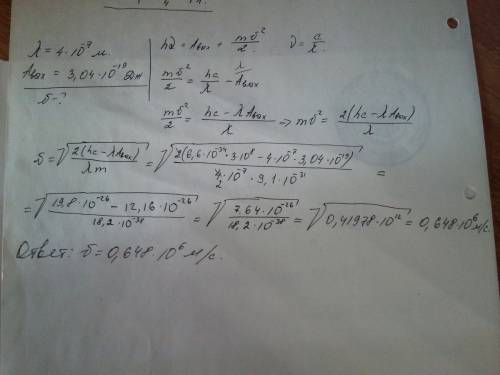 λ = 4·10⁻⁷ м.
Aвых = 3,04·10⁻¹⁹ Дж
υ - ?
hν = Aвых + mυ²/2. ν = c/λ.
mυ²/2 = hc/λ - Aвых
mυ²/2 = (hc - λAвых)/λ => mυ² = 2(hc - λAвых)/λ
υ = √(2(hc - λAвых)/λm) = √(2(6,6·10⁻³⁴·3·10⁸ - 4·10⁻⁷·3,04·10⁻¹⁹)/4·10⁻⁷·9,1·10⁻³¹) =
= √((19,8·10⁻²⁶ - 12,16·10⁻²⁶)/18,2·10⁻³⁸) = √(7,64·10⁻²⁶/18,2·10⁻³⁸) = √(0,41978·10¹²) = 0,648·10⁶ м/с
Ответ: υ = 0,648·10⁶ м/с.